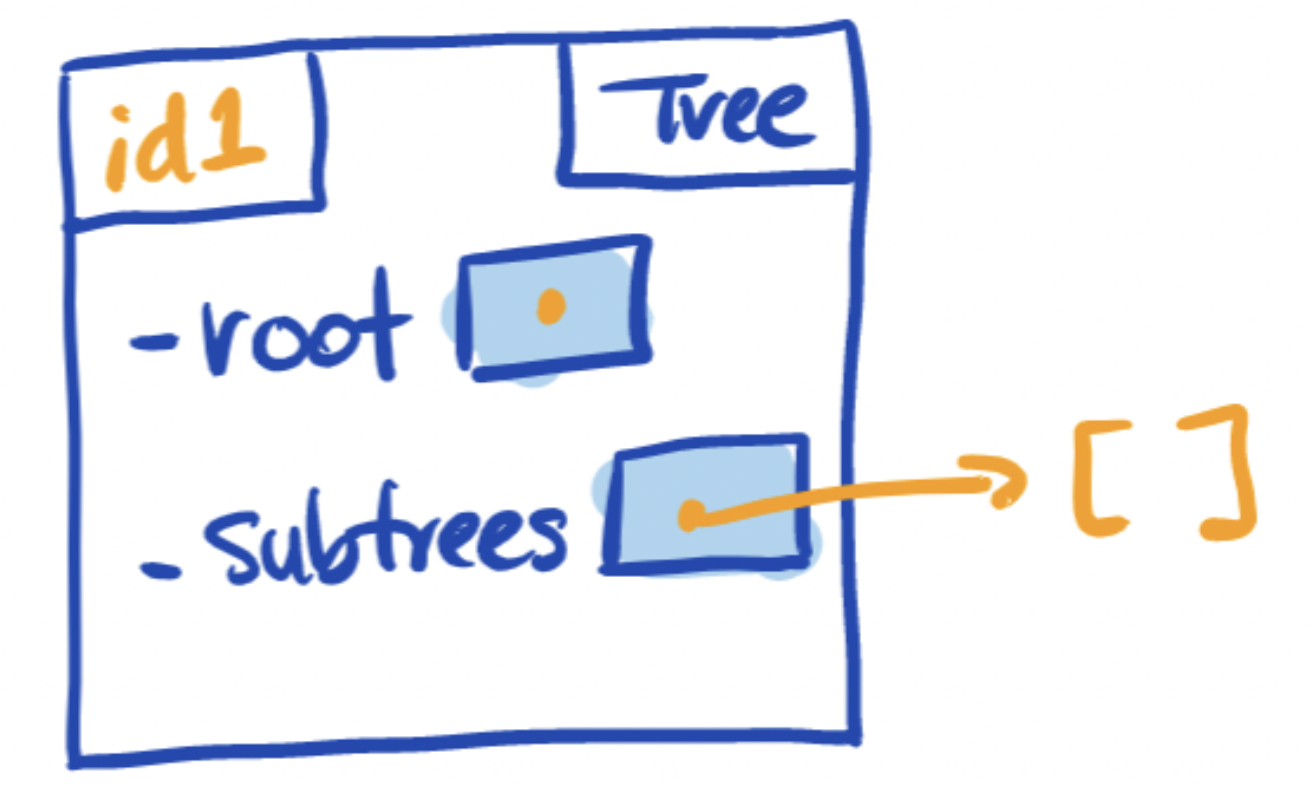 id1
Tree
-root
-subtrees
[ ]